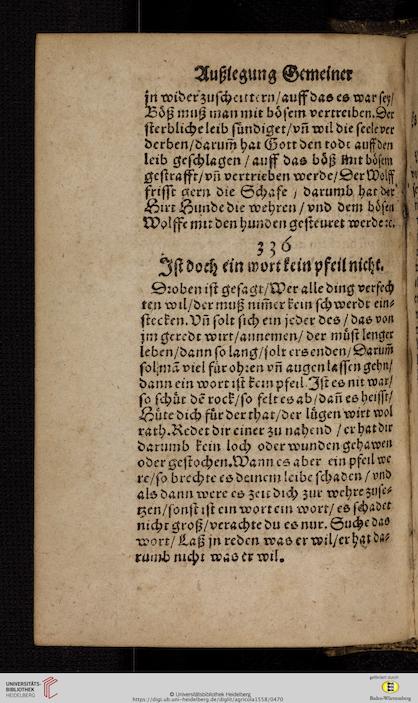 Außlegung Gemeiner
jn wider zuscheittern / auff das es war sey /
Böß muß man mit bösem vertreiben. Der
sterbliche leib sündiget / vñ wil die seele ver
derben / darum̃ hat Gott den todt auff den
leib geschlagen / auff das böß mit bösem
gestrafft / vñ vertrieben werde / Der Wolff
frisst gern die Schafe / darumb hat der
Hirt Hunde die wehren / vnd dem bösen
Wolffe mit den hunden gesteuret werde ꝛc.
336
Ist doch ein wort kein pfeil nicht.
Droben ist gesagt / Wer alle ding verfech
ten wil / der muß nim̃er kein schwerdt ein-
stecken. Vñ solt sich ein jeder des / das von
jm geredt wirt / annemen / der müst lenger
leben / dann so lang / solt ers enden / Darum̃
sol mã viel für ohren vñ augen lassen gehn /
dann ein wort ist kein pfeil. Ist es nit war /
so schüt dẽ rock / so felt es ab / dañ es heisst /
Hüte dich für der that / der lügen wirt wol
rath. Redet dir einer zu nahend / er hat dir
darumb kein loch oder wunden gehawen
oder gestochen. Wann es aber ein pfeil we
re / so brechte es deinem leibe schaden / vnd
als dann were es zeit dich zur wehre zuse-
tzen / sonst ist ein wort ein wort / es schadet
nicht groß / verachte du es nur. Suche das
wort / Laß jn reden was er wil / er hat da-
rumb nicht was er wil.
UNIVERSITÄTS-
BIBLIOTHEK
HEIDELBERG
© Universitätsbibliothek Heidelberg
https://digi.ub.uni-heidelberg.de/diglit/agricola1558/0470
gefördert durch
Baden-Württemberg